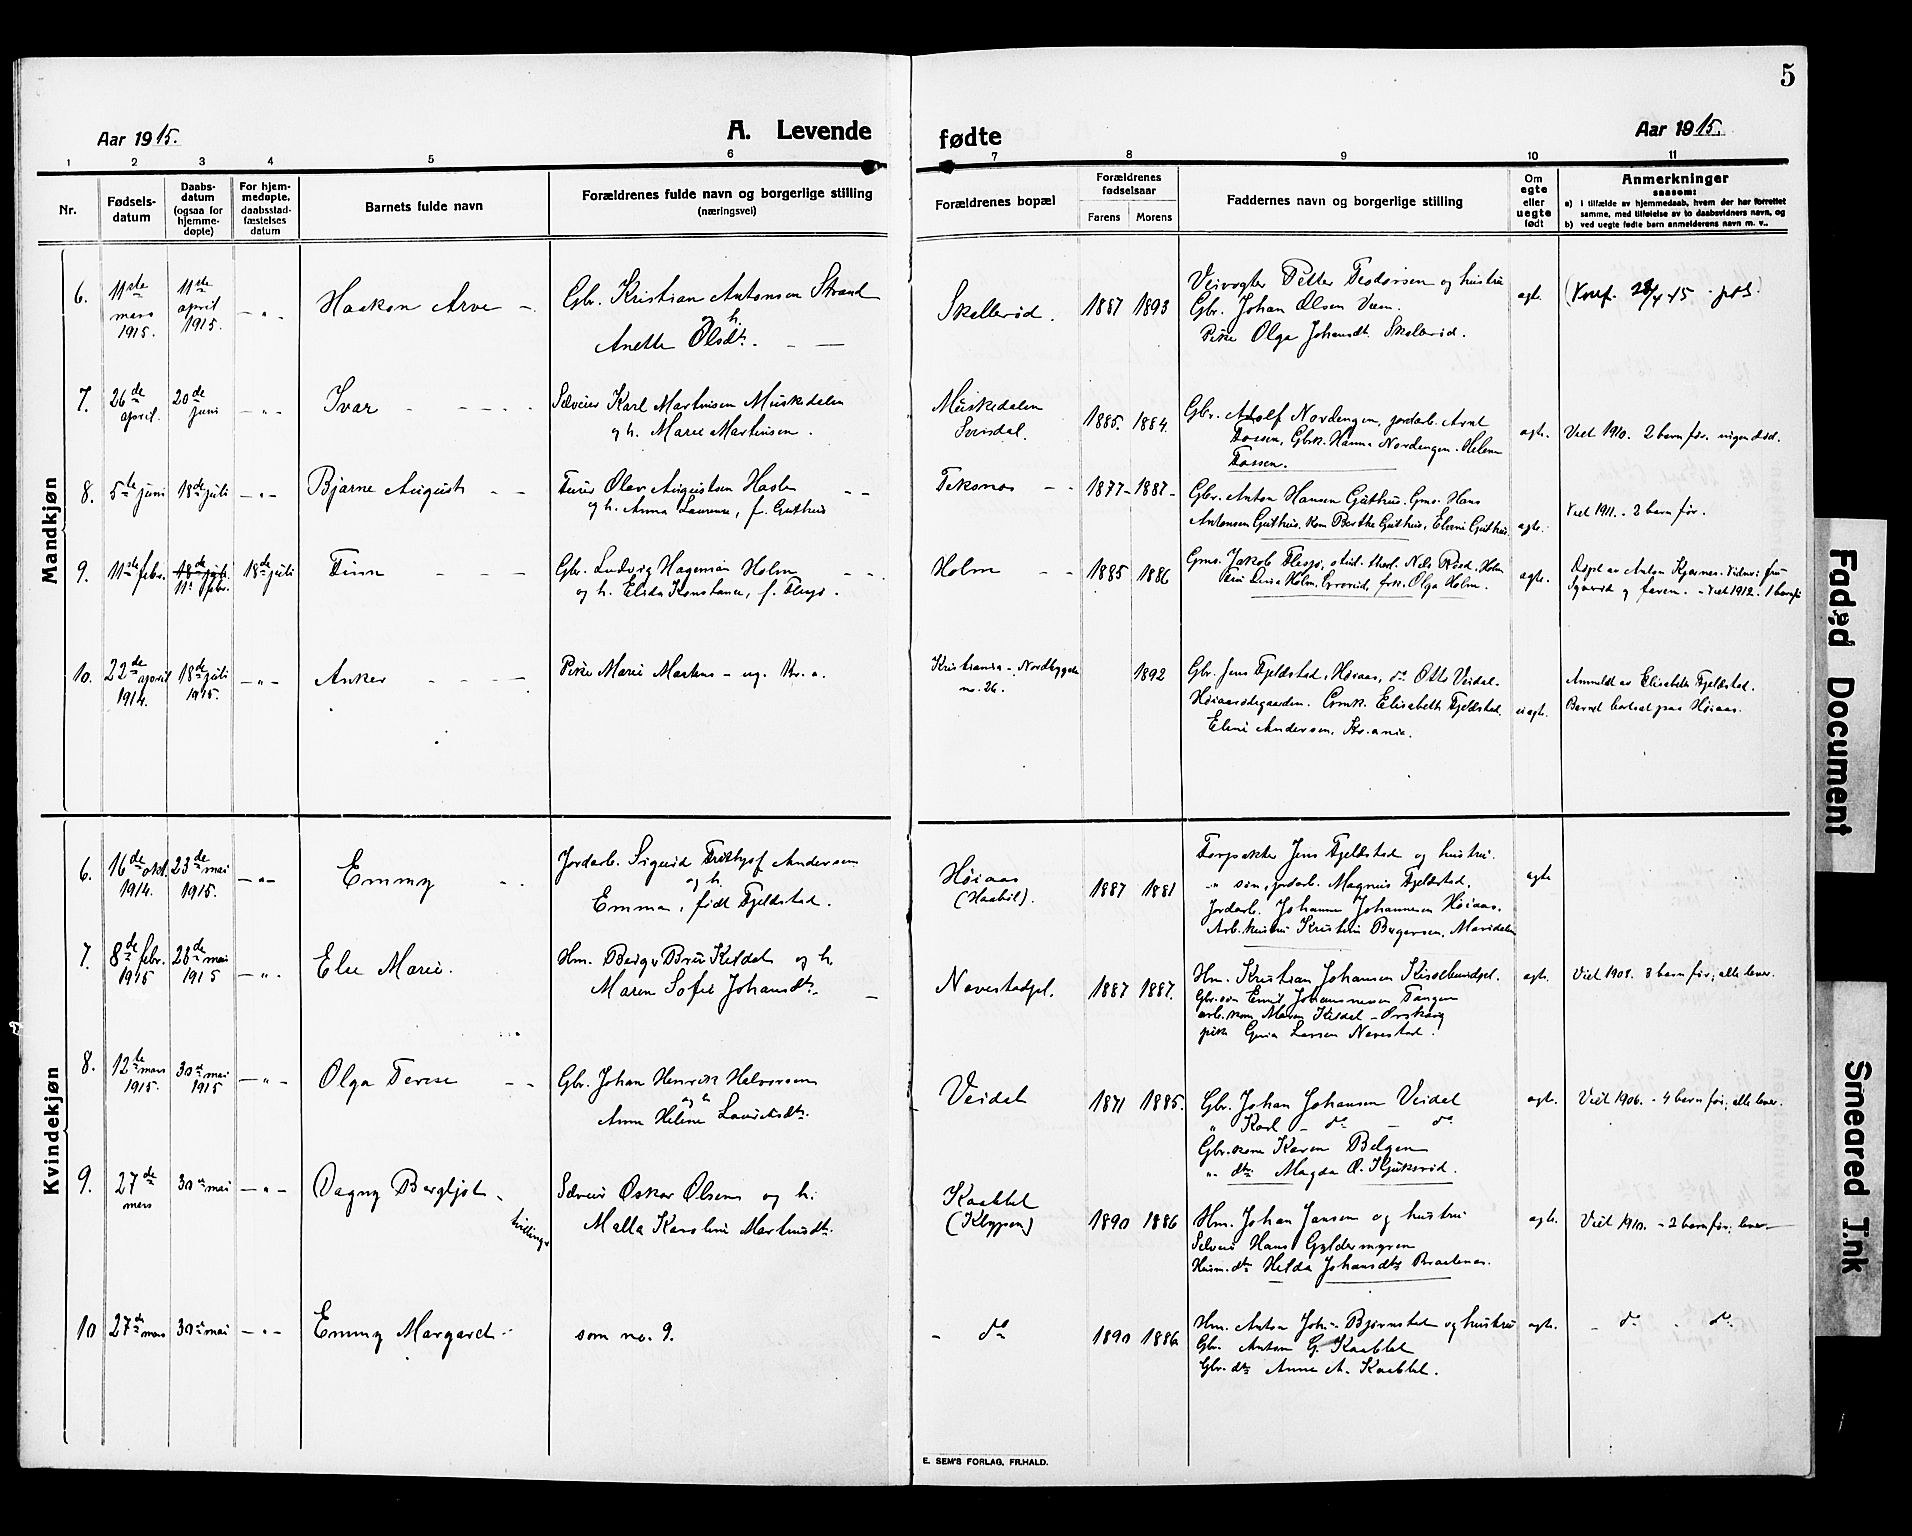 5
Aar 1915.
A. Levende
fødte
Aar 1915.
1 2 3 4 5 6 7 8 9 10 11
Nr.
Fødsels-
datum
Daabs-
datum
(ogsaa for
hjemme-
døpte)
For hjem-
medøpte,
daabsstad-
fæstelses
datum
Barnets fulde navn
Forældrenes fulde navn og borgerlige stilling
(næringsvei)
Forældrenes bopæl
Forældrenes
fødselsaar
Farens Morens
Faddernes navn og borgerlige stilling
Om
egte
eller
uegte
født
Anmerkninger
saasom:
a) i tilfælde av hjemmedaab, hvem der har forrettet
samme, med tilføielse av to daabsvidners navn, og
b) ved uegte fødte barn anmelderens navn m. v..
Mandkjøn
6.
11te
mars
1915.
11te
april
1915.
- " -
Haakon Arve -
Gbr. Kristian Antonsen Strand
h.
Anette Olsdtr. - -
Skellerød.
1887 1893
Veivogter Petter Teodorsen og hustru
Gbr. Johan Olsen Veen.
Pike Olga Johansdt. Skellerød.
egt.
7.
26de
april.
20de
juni
- " -
Ivar - - - -
Sæveier Karl Martinsen Muskedalen
og h. Marie Martinsen.
Muskedalen
1885. 1884.
Gbr. Adolf Nordengen, jordarb. Arnt
Fossen, Gbrk. Hanna Nordengen. Helene
Fossen.
egt.
Viet 1910. 2 barn før. ingen død.
8.
5te juni
18de juli
- " -
Bjarne August - -
Olav Augustsen Hasle - -
og h. Anna Laurense, f. Guthus
Teksnes - -
1877- 1887-
Gbr. Anton Hansen Guthus. Gms. Hans
Antonsen Guthus. kon Berthe Guthus, Elvine Guthus.
egt.
Viet 1911. - 2 barn før.
9.
11te febr.
18de juli
11te febr.
18de juli
Finn - - -
Gbr. Ludvig Hageman Holm - -
og h. Elida Konstance, f. Flesjø.
Holm - -
1885 1886
Gms. Jakob Flesjø, stud. theol. Nils Rosd. Holm
frk. Olga Holm.
egt.
Døpt av Anton Kjærnes. Vidner: fru
og faren. - Viet 1912. 1 barn før
10.
22de april
1914.
18de juli
1915.
- " -
Anker - - - -
Pike Marie Martens - ug. Kr.a.
Kristiania - Nordbygata
no. 26.
1892
Gbr. Jens Fjeldstad, Høiaas, do Otto Veidal.
Høiaasødegaarden. Gmk. Elisabeth Fjeldstad.
Eline Andersen, Kr.ania.
uegt.
Anmeldt av Elisabeth Fjeldstad.
Barnet bortsat paa Høiaas.
Kvindekjøn
6.
16de okt.
1914.
23de mai
1915.
- " -
Emmy - -
Jordarb. Sigurd Fridtjof Andersen
og h.
Emma, født Fjeldstad.
Høiaas
(Haabøl).
1887 1881
Forpakter Jens Fjeldstad og hustru.
-" søn, jordarb. Magnus Fjeldstad.
Jordarb. Johannes Johannesen Høiaas.
Arb. hustru Kristine Birgersen, Maridalen
egt.
7.
8de febr.
1915
23de mai
1915
- " -
Else Marie.
Hm. Birger Kildal og h.
Maren Sofie Johansdtr. -
Navestadgst.
1887 1887.
Hm. Kristian Johansen
Gbr.søn Emil Johannesen Tangen
arb. kone Maren Kildal - Ørskaug
pike Larsen Navestad.
egt.
Viet 1908. 3 barn før, alle lever.
8.
12te mars
1915.
30te mai
1915
- " -
Olga Terese - -
Gbr. Johan Henrik Halvorsen
og h.
Anna Helene Lauritsdtr.
Veidal
1871 1885.
Gbr. Johan Johansen Veidal
" Karl - do - do
Gbr.kone Karen Belgen
" dtr. Magda O. Kjuksrød.
egt.
Viet 1906. - 4 barn før, alle lever.
9.
27de
mars
30te mai
- " -
Dagny Bergljot -
tvillinger
Sæveier Oskar Olsen og h.
Malla Karoline Martinsdtr.
Kaablet
(Kleppen)
1890 1886
Hm. Johan Jansen og hustru
Selveier Hans Gyldermyren
Husm. dtr. Hilda Johansdtr. Braatenes.
egt.
Viet 1910. - 2 barn før, lever -
10
27de mars
30te mai
- " -
Emmy Margaret -
som no. 9.
- do
1890 1886
Hm. Anton Joh. Bjørnstad og hustru
Gbr. Anton G. Kaablet
Gbr. dtr. Anna A. Kaablet.
egt.
- do - do
E. SEM'S FORLAG, FR.HALD.
Faded Document
Smeared Ink